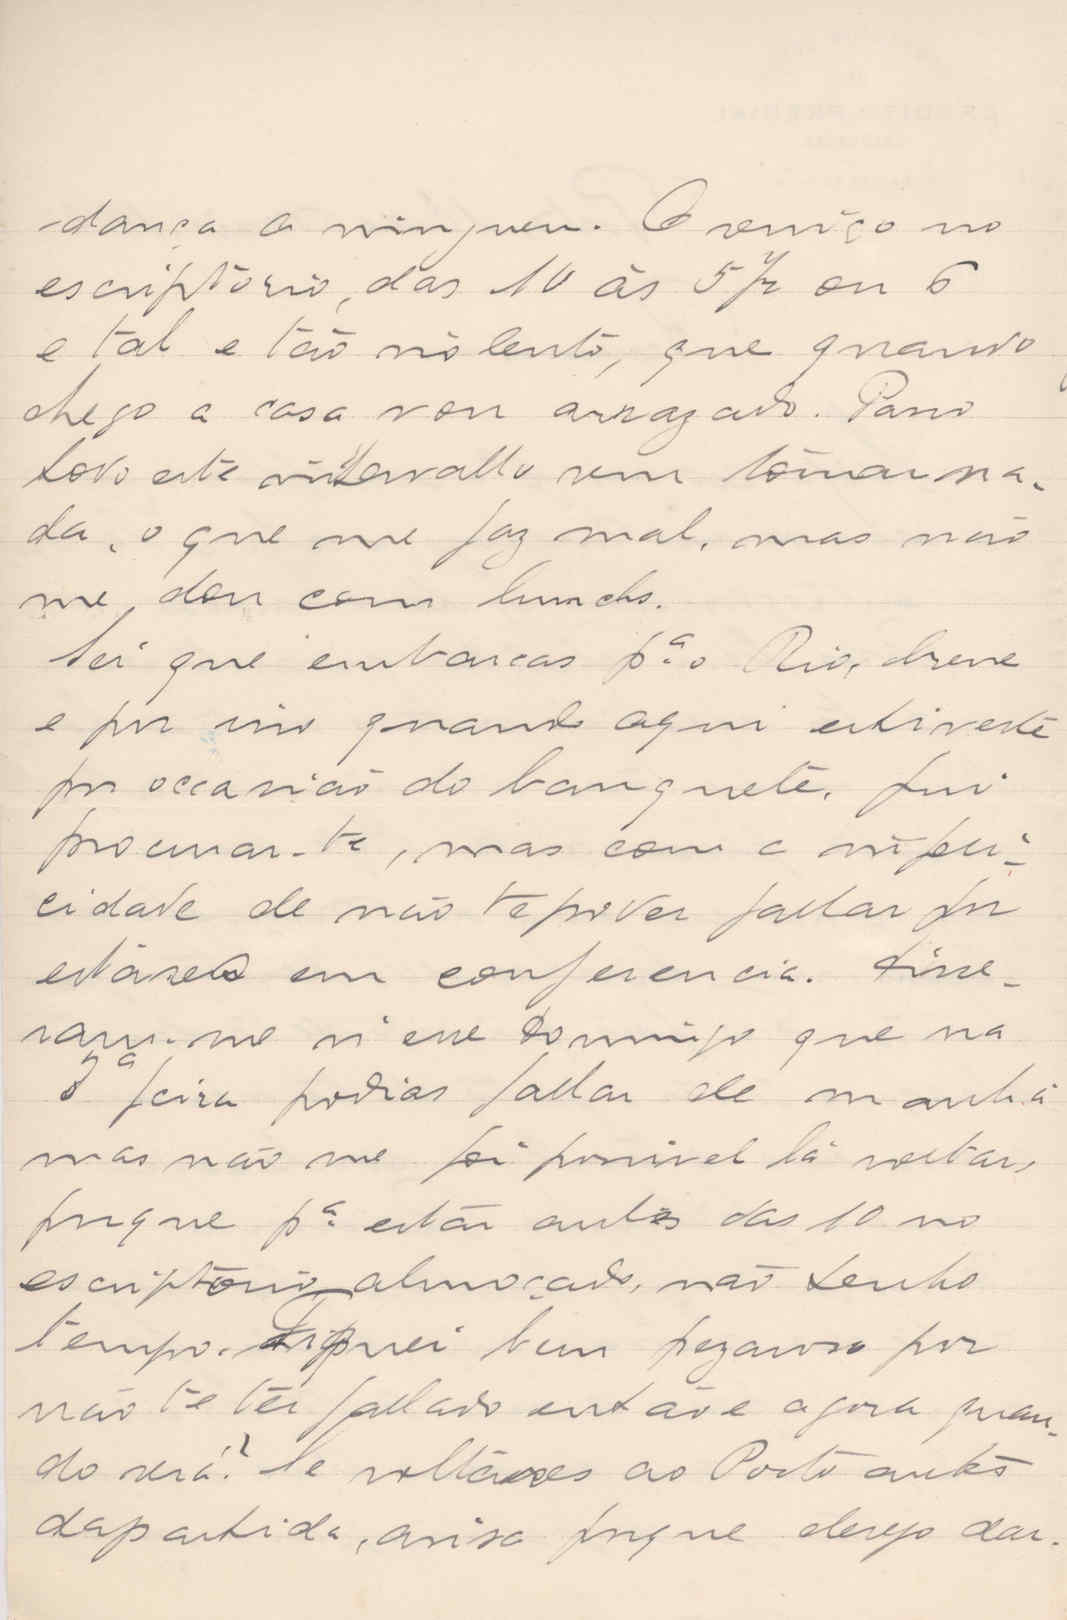 dança a ninguem. O serviço no
escriptório, das 10 ás 5 1/2 ou 6
e tal e tão violento, que quando
chego a casa vou arrazado. Passo
todo este intervallo sem tomar na-
da, o que me faz mal, mas não
me dou com lunchs.
Sei que embarcas pª. o Rio, breve
e por isso quando aqui estiveste
por occasião do banquete, fui
procurar-te, mas com a infeli-
cidade de não te poder fallar por
estáres em conferencia. Disse-
ram-me n'esse Domingo que na
3ª feira podias fallar de manhã
mas não me foi possivel lá voltar,
porque pª. estár antes das 10 no
escriptório almoçado, não tenho
tempo. Fiquei bem pezaroso por
não te têr fallado então e agora quan-
do será? Se voltáres ao Porto antes
da partida, avisa porque desejo dar-